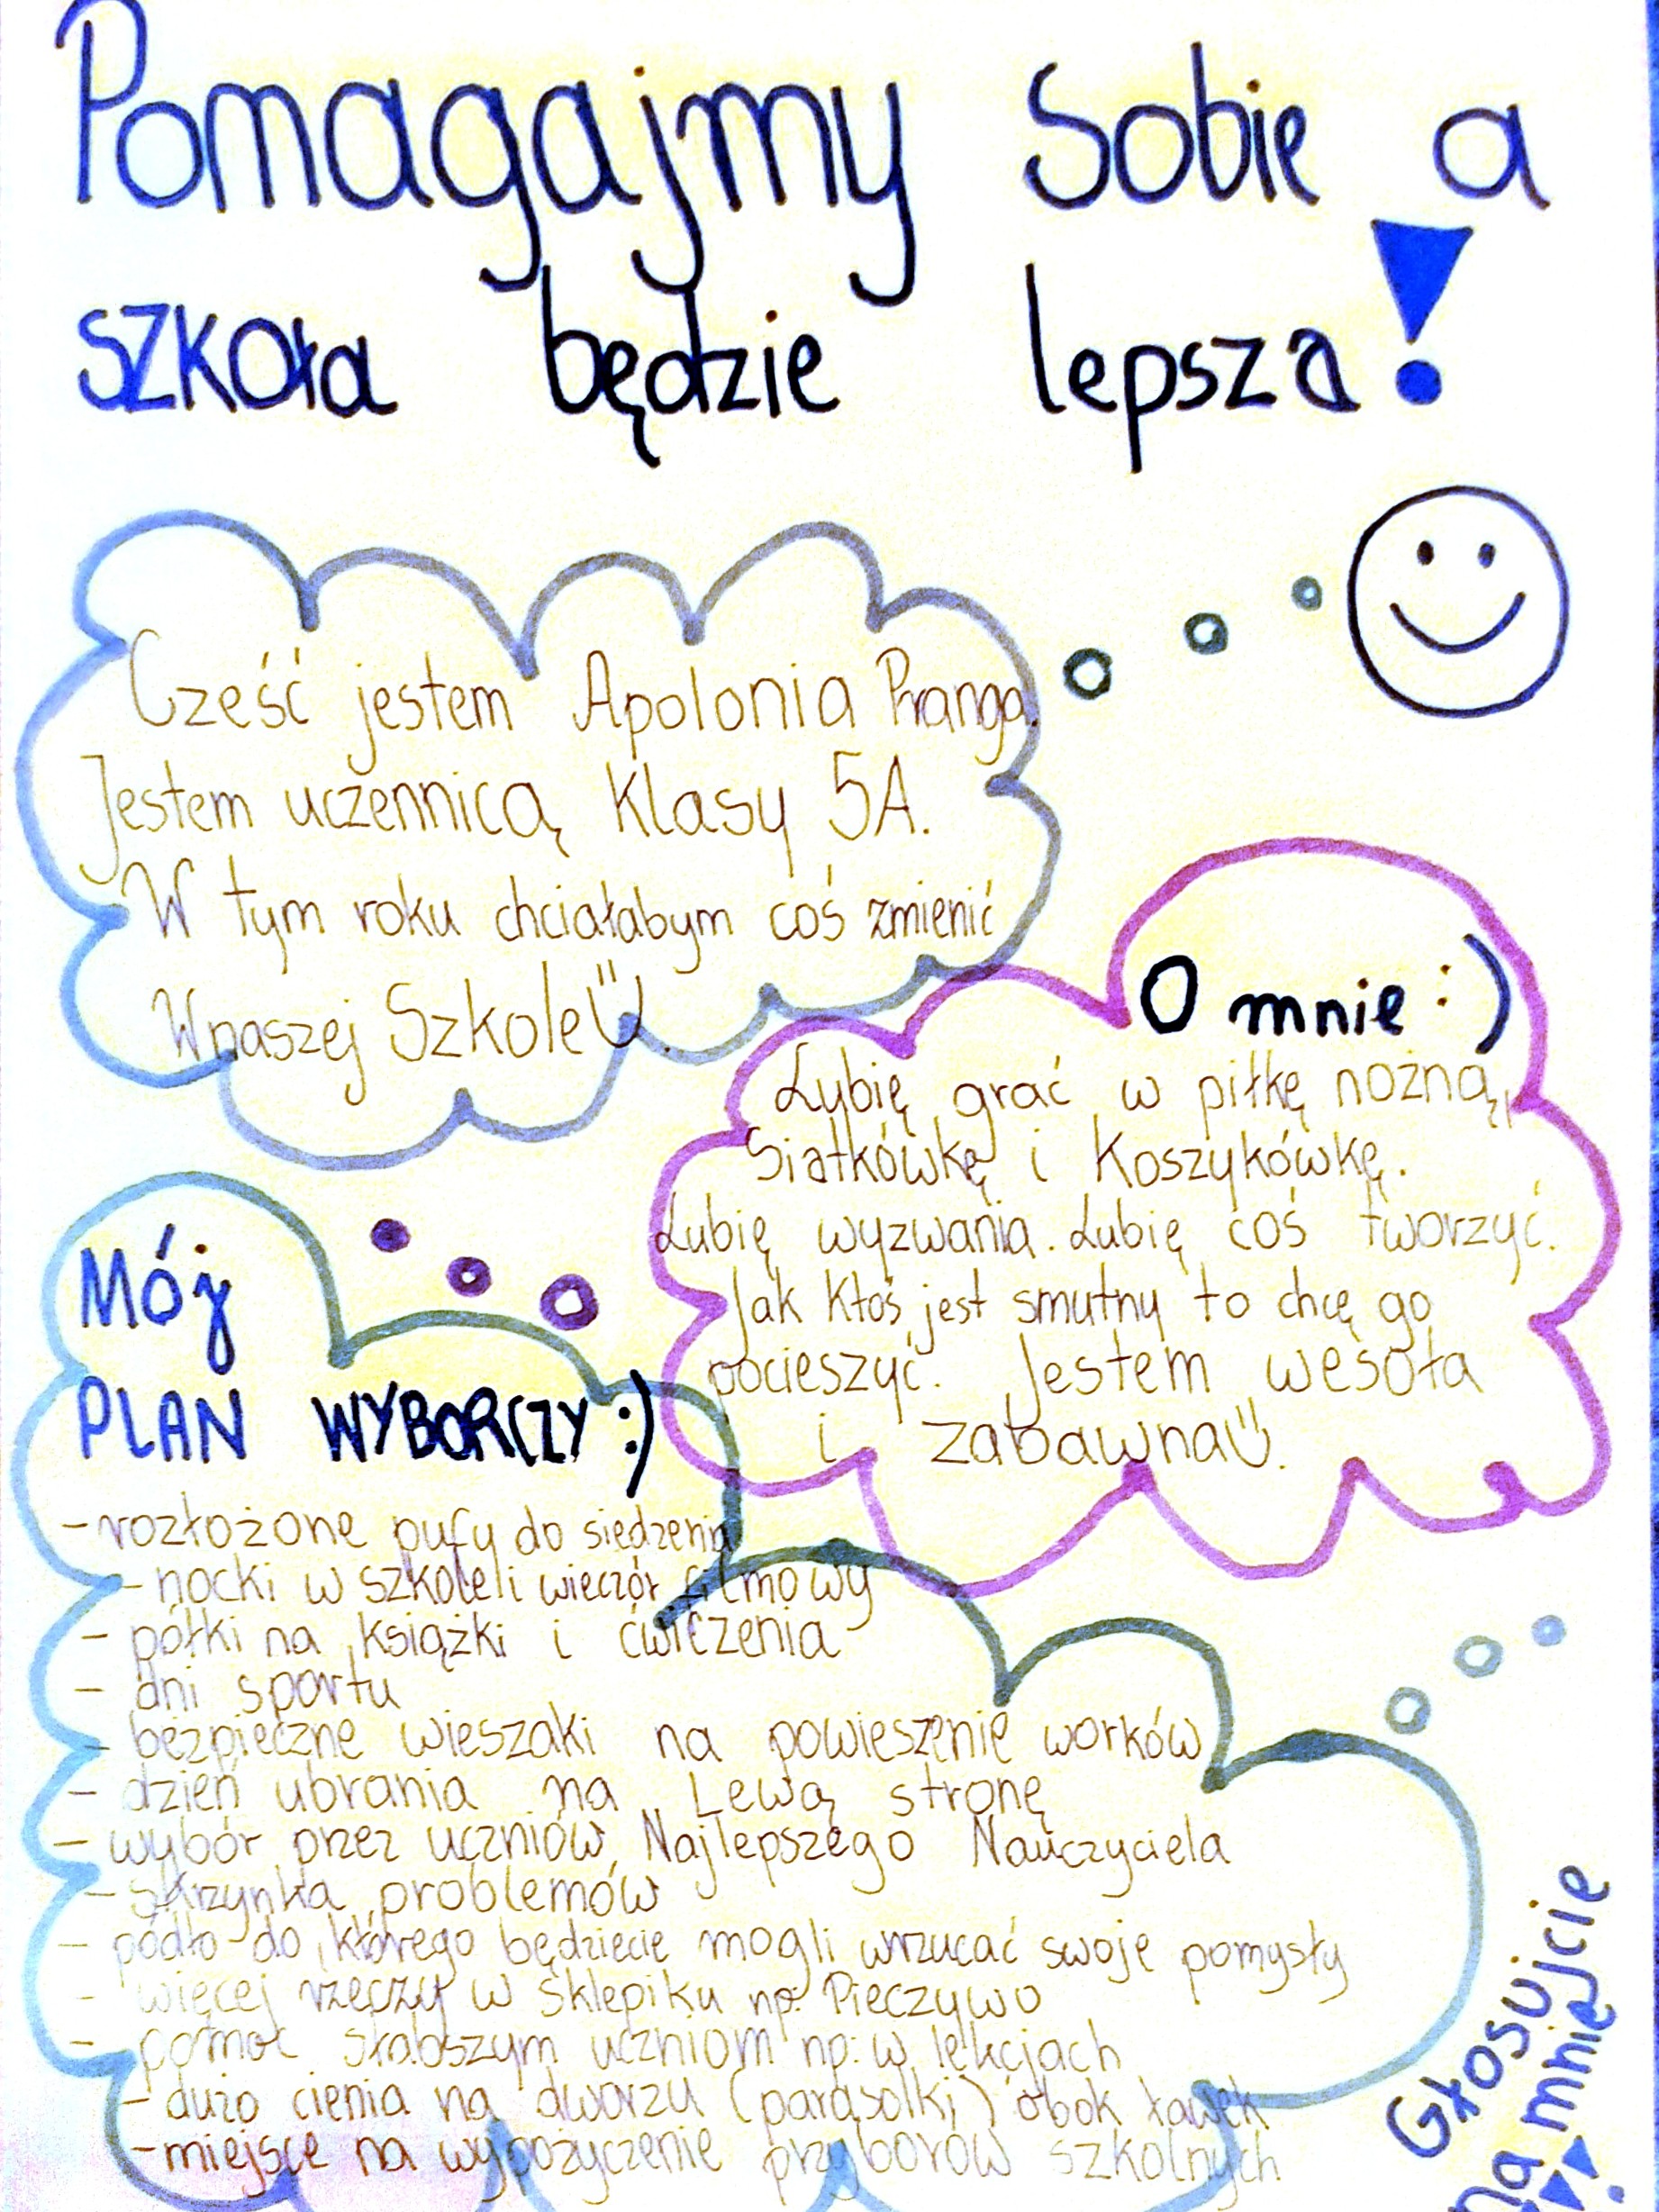 Pomagajmy Sobie a
SZKOła będzie lepsza!
Cześć jestem Apolonia Pranga.
Jestem uczennicą Klasy 5A.
W tym roku chciałabym coś zmienić
W naszej Szkole
O mnie :)
Lubię grać w piłkę nożną,
Siatkówkę i Koszykówkę.
Lubię wyzwania. Lubię coś tworzyć.
Jak Ktoś jest smutny to chcę go
pocieszyć. Jestem wesoła
i zabawna.
Mój
PLAN WYBORCZY :)
- rozłożone pufy do siedzenia
- nocki w szkole i wieczór filmowy
- półki na książki i ćwiczenia
- dni sportu
- bezpieczne wieszaki na powieszenie worków
- dzień ubrania na Lewą stronę
- wybór przez uczniów Najlepszego Nauczyciela
- skrzynka problemów
- pódło do którego będziecie mogli wrzucać swoje pomysły
- więcej rzeczy w sklepiku np: Pieczywo
- pomoc słabszym uczniom np: w lekcjach
- dużo cienia na dworzu (parasolki) obok ławek
- miejsce na wypożyczenie przyborów szkolnych
Głosujcie
na mnie!